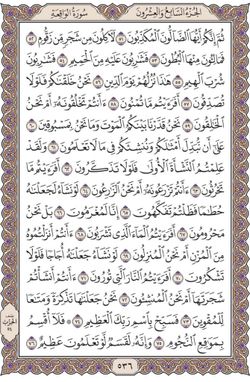 الجزء السابع والعشرون سورة الواقعة
ثُمَّ إِنَّكُمْ أَيُّهَا الضَّالُّونَ الْمُكَذِّبُونَ ٥١ لَآكِلُونَ مِن شَجَرٍ مِّن زَقُّومٍ ٥٢
فَمَالِئُونَ مِنْهَا الْبُطُونَ ٥٣ فَشَارِبُونَ عَلَيْهِ مِنَ الْحَمِيمِ ٥٤ فَشَارِبُونَ
شُرْبَ الْهِيمِ ٥٥ هَٰذَا نُزُلُهُمْ يَوْمَ الدِّينِ ٥٦ نَحْنُ خَلَقْنَاكُمْ فَلَوْلَا
تُصَدِّقُونَ ٥٧ أَفَرَأَيْتُم مَّا تُمْنُونَ ٥٨ أَأَنتُمْ تَخْلُقُونَهُ أَمْ نَحْنُ
الْخَالِقُونَ ٥٩ نَحْنُ قَدَّرْنَا بَيْنَكُمُ الْمَوْتَ وَمَا نَحْنُ بِمَسْبُوقِينَ ٦٠
عَلَىٰ أَن نُّبَدِّلَ أَمْثَالَكُمْ وَنُنشِئَكُمْ فِي مَا لَا تَعْلَمُونَ ٦١ وَلَقَدْ
عَلِمْتُمُ النَّشْأَةَ الْأُولَىٰ فَلَوْلَا تَذَكَّرُونَ ٦٢ أَفَرَأَيْتُم مَّا
تَحْرُثُونَ ٦٣ أَأَنتُمْ تَزْرَعُونَهُ أَمْ نَحْنُ الزَّارِعُونَ ٦٤ لَوْ نَشَاءُ لَجَعَلْنَاهُ
حُطَامًا فَظَلْتُمْ تَفَكَّهُونَ ٦٥ إِنَّا لَمُغْرَمُونَ ٦٦ بَلْ نَحْنُ
مَحْرُومُونَ ٦٧ أَفَرَأَيْتُمُ الْمَاءَ الَّذِي تَشْرَبُونَ ٦٨ أَأَنتُمْ أَنزَلْتُمُوهُ
مِنَ الْمُزْنِ أَمْ نَحْنُ الْمُنزِلُونَ ٦٩ لَوْ نَشَاءُ جَعَلْنَاهُ أُجَاجًا فَلَوْلَا
تَشْكُرُونَ ٧٠ أَفَرَأَيْتُمُ النَّارَ الَّتِي تُورُونَ ٧١ أَأَنتُمْ أَنشَأْتُمْ
شَجَرَتَهَا أَمْ نَحْنُ الْمُنشِئُونَ ٧٢ نَحْنُ جَعَلْنَاهَا تَذْكِرَةً وَمَتَاعًا
لِّلْمُقْوِينَ ٧٣ فَسَبِّحْ بِاسْمِ رَبِّكَ الْعَظِيمِ ٧٤ فَلَا أُقْسِمُ
بِمَوَاقِعِ النُّجُومِ ٧٥ وَإِنَّهُ لَقَسَمٌ لَّوْ تَعْلَمُونَ عَظِيمٌ ٧٦
٥٣٦